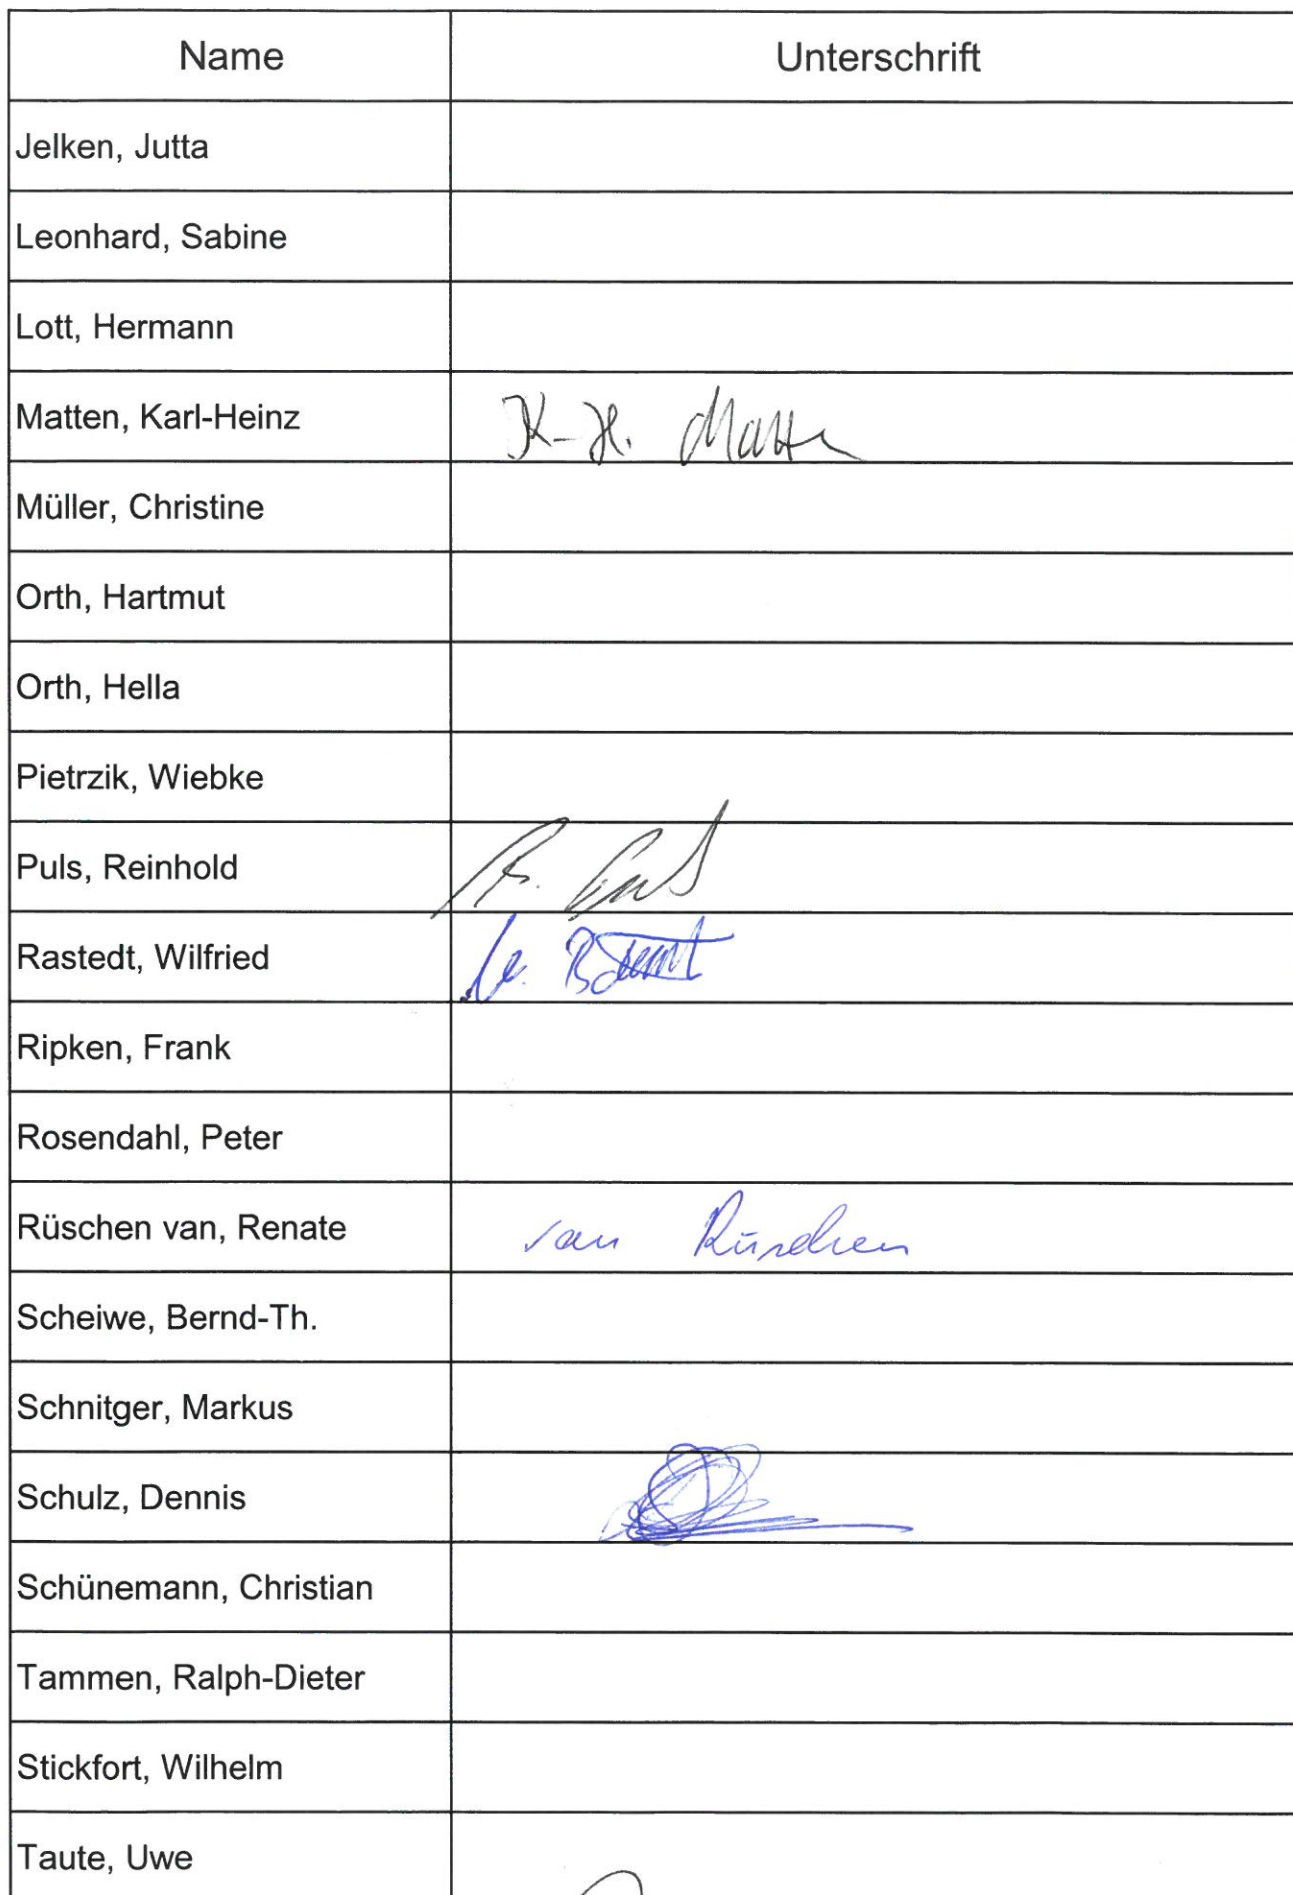 Name Unterschrift
Jelken, Jutta
Leonhard, Sabine
Lott, Hermann
Matten, Karl-Heinz K-H. Matten
Müller, Christine
Orth, Hartmut
Orth, Hella
Pietrzik, Wiebke
Puls, Reinhold R. Puls
Rastedt, Wilfried
Ripken, Frank
Rosendahl, Peter
Rüschen van, Renate van Rüschen
Scheiwe, Bernd-Th.
Schnitger, Markus
Schulz, Dennis
Schünemann, Christian
Tammen, Ralph-Dieter
Stickfort, Wilhelm
Taute, Uwe